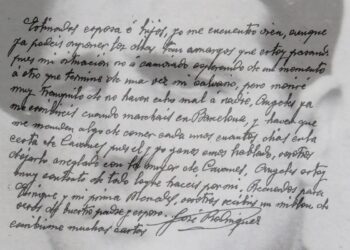 Estimadas esposa é hijos, yo me encuentro bien, aunque
ya podeis suponer los dias tan amargos que estoy pasando
pues mi situación no á cambiado esperando de un momento
á otro que termine de una vez mi calvario, pero
muy tranquilo de no haver echo mal á nadie, Angeles ya
me escribireis cuando marcheis en Barcelona, y haver que
me manden algo de comer cada unos cuantos dias en la
cesta de Cavanes, pues el y yo ya nemos hablado, vosotras
dejarlo areglado con la mujer de Cavanes, Angeles estoy
muy contento de todo loque haceis por mi. Recuerdos para
Enrique, y mi prima vosotras recibir un millon de
vesos de buestro padre y esposo. José
escribirme muchas cartas